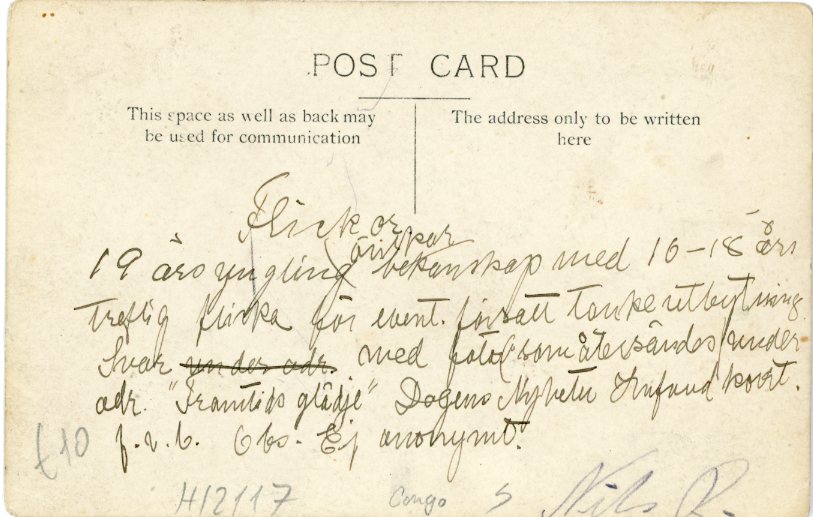 POST CARD
This space as well as back may
be used for communication
The address only to be written
here
Flickor
önskar
19 års yngling bekanskap med 16-18 års
treflig flicka för event. forsatt tankeutbytning.
Svar under adr. med foto (som återsändes) under
adr. "Framtids glädje" Dagens Nyheter kvart.
f. v. b. Obs. Ej anonymt.
£10
H12117
Congo
5
Nils R.